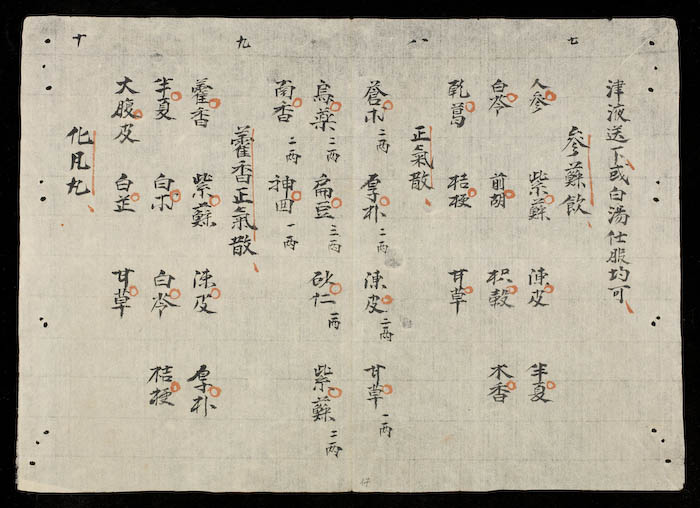 津液送下或白湯仕服均可
七
參蘇飲
人參 紫蘇 陳皮 半夏
白苓 前胡 枳殼 木香
乾葛 桔梗 甘草
八
正氣散
蒼朮二两 厚朴二两 陳皮二两 甘草一两
烏藥二两 扁豆三两 砂仁一两 紫蘇二两
南香二两 神曲一两
九
藿香正氣散
藿香 紫蘇 陳皮 厚朴
半夏 白朮 白苓 桔梗
大腹皮 白芷 甘草
十
化 丸